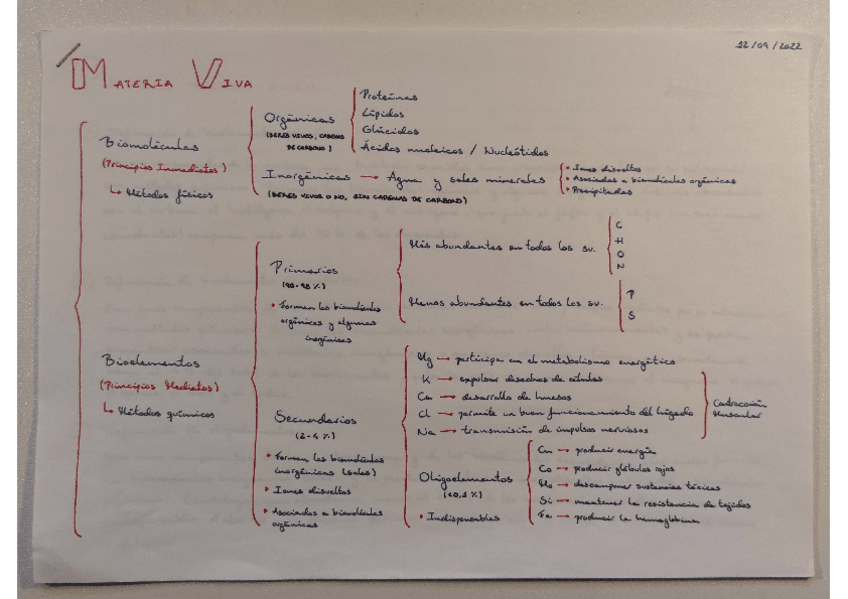 12/09/2022
MATERIA VIVA
Biomoléculas
(Principios Inmediatos)
↳ Métodos físicos
Orgánicas
(SERES VIVOS, CADENA
DE CARBONO)
Proteínas
Lípidos
Glúcidos
Ácidos nucleicos / Nucleótidos
Inorgánicas → Agua y sales minerales
(SERES VIVOS O NO, SIN CADENAS DE CARBONO)
• Iones disueltos
• Asociadas a biomoléculas orgánicas
• Precipitadas
Bioelementos
(Principios Mediatos)
↳ Métodos químicos
Primarios
(90-98 %)
• Forman las biomoléculas
orgánicas y algunas
inorgánicas
Más abundantes en todos los sv.
C
H
O
N
Menos abundantes en todos los sv.
P
S
Secundarios
(2-4 %)
• Forman las biomoléculas
inorgánicas (sales)
• Iones disueltos
• Asociados a biomoléculas
orgánicas
Mg → participa en el metabolismo energético
K → expulsar desechos de células
Ca → desarrollo de huesos
Cl → permite un buen funcionamiento del hígado
Na → transmisión de impulsos nerviosos
Contracción
Muscular
Oligoelementos
(<0,1 %)
• Indispensables
Cu → producir energía
Co → producir glóbulos rojos
→ descomponer sustancias tóxicas
Si → mantener la resistencia de tejidos
Fe → producir la hemoglobina